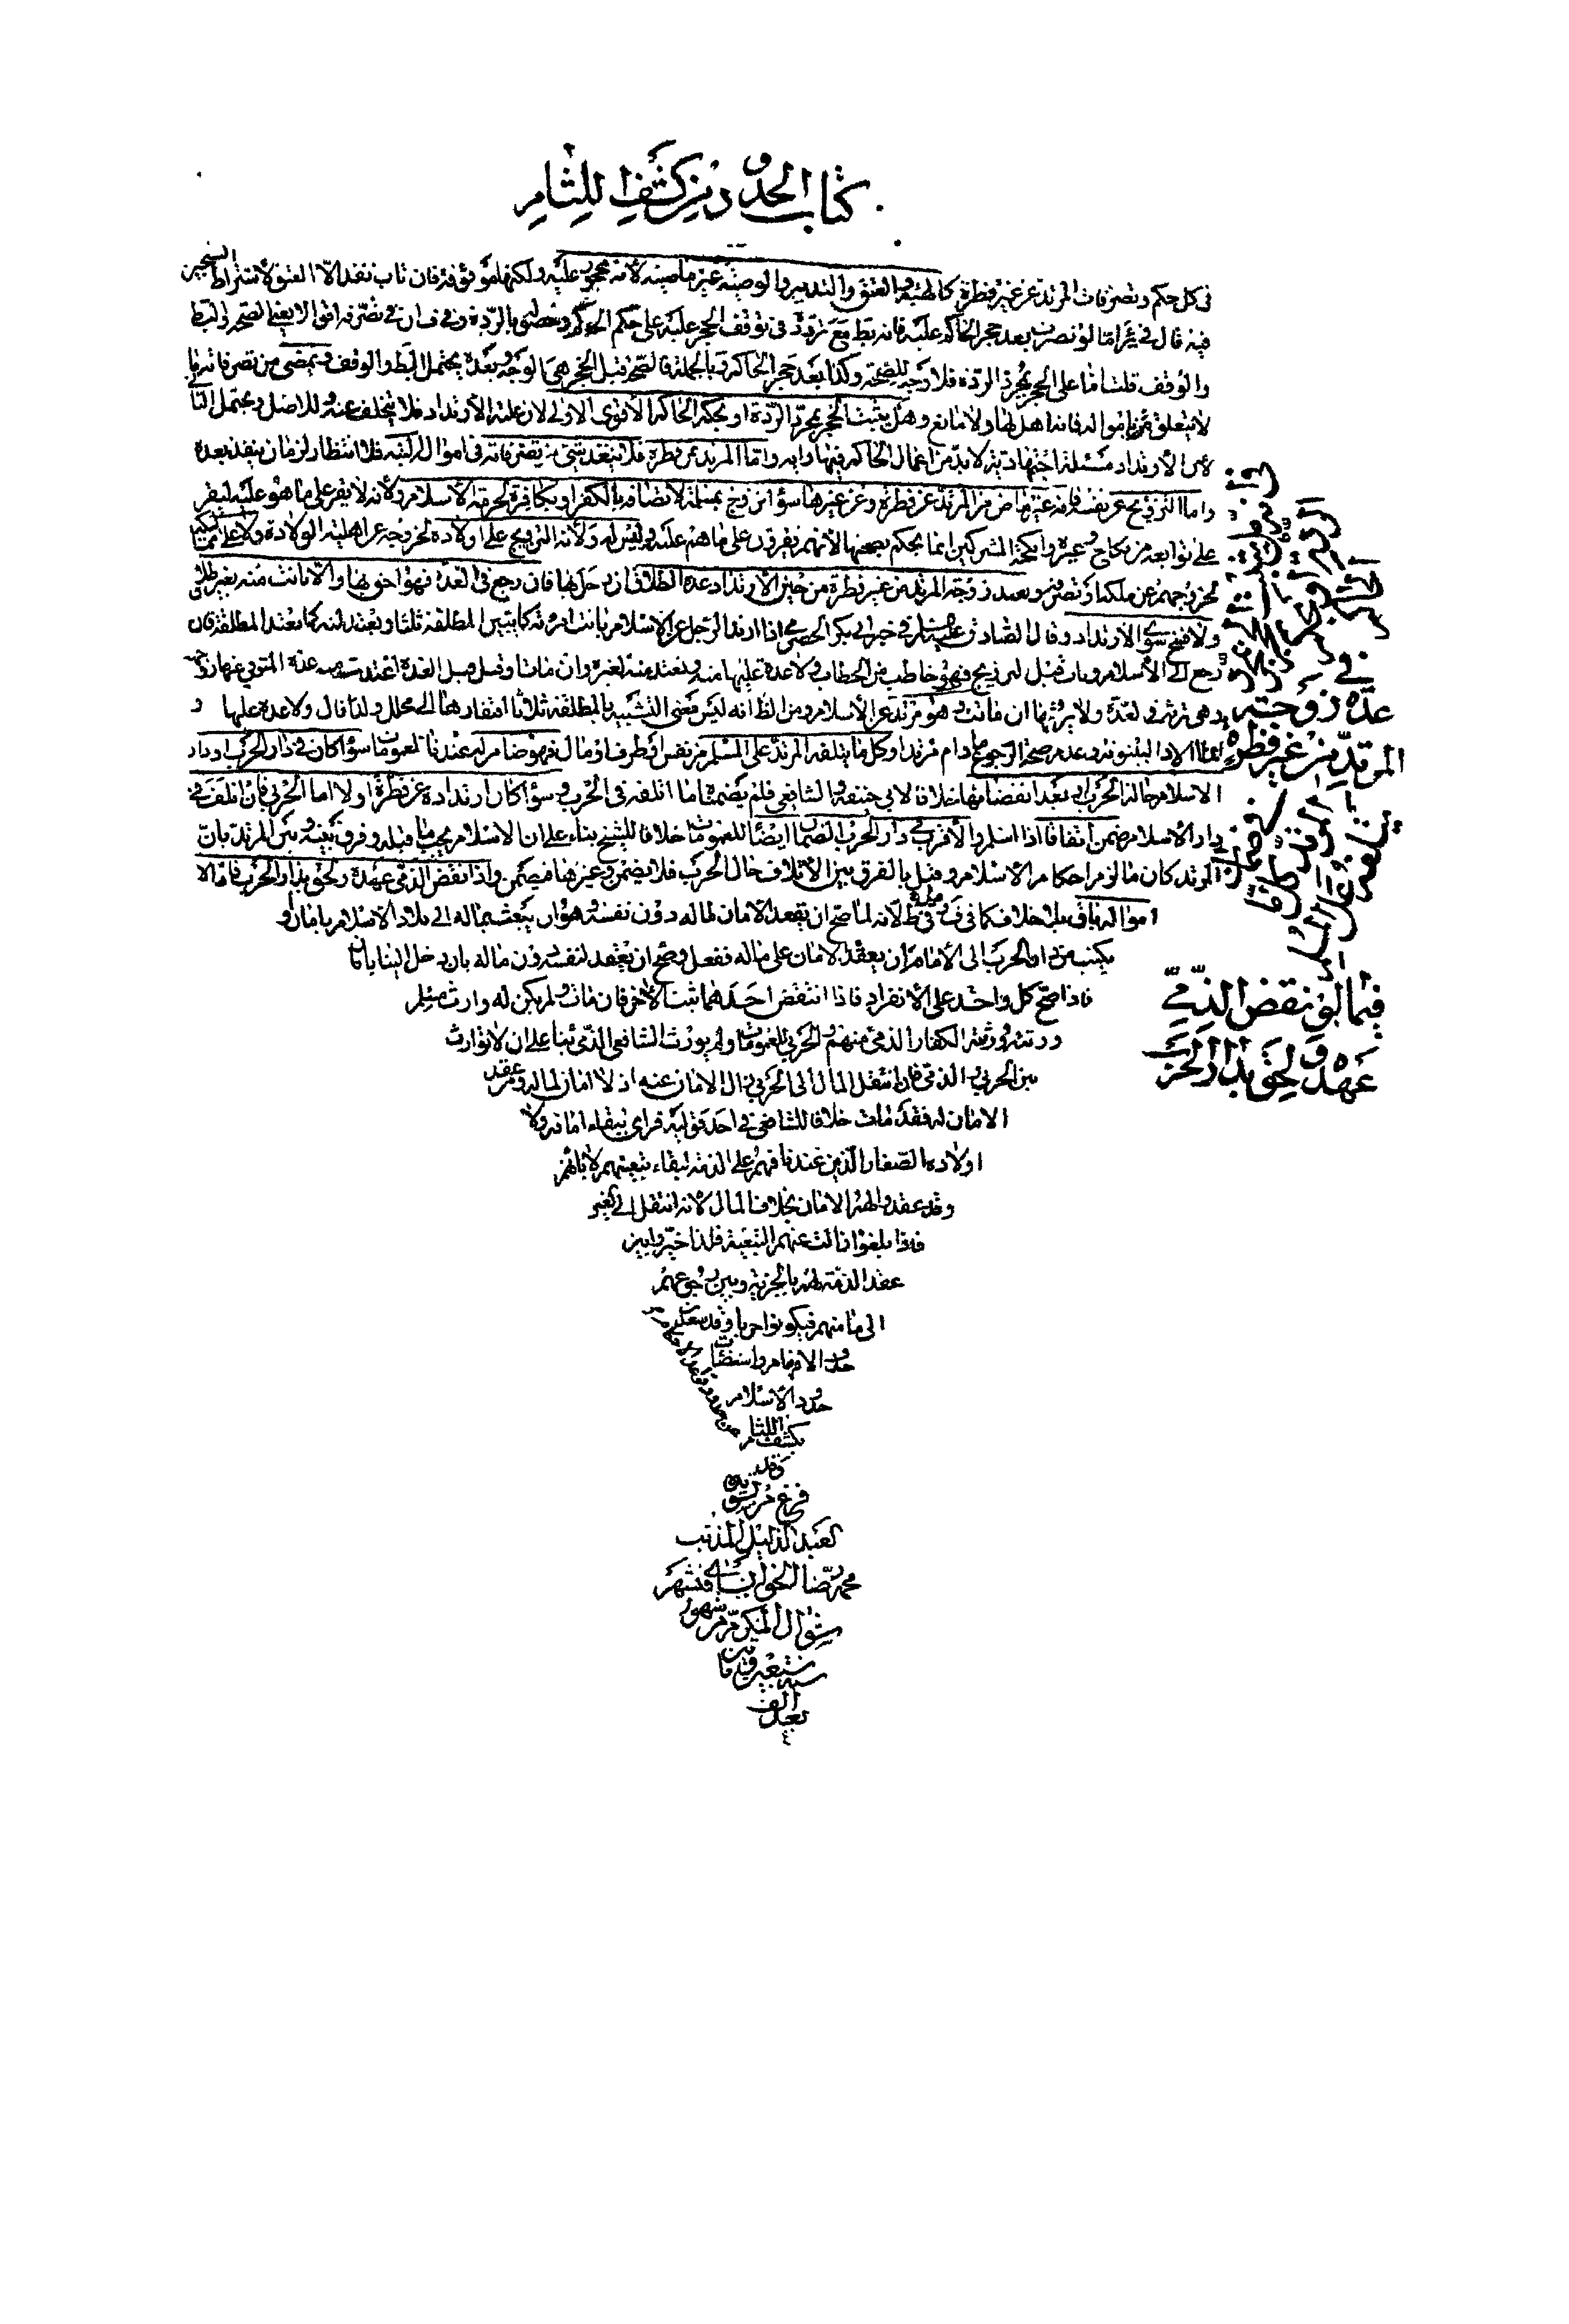 كتاب الحدود من كشف اللثام
فى كل حكم وتصرفات المرتد عن غير فطرة كالهبة والعتق والتدبير والوصية غير ماضية لأنه محجور عليه ولكنها موقوفة فان تاب نفذ الا العتق لاشتراط التنجيز
فيه قال فى ير اما لو تصرف بعد حجر الحاكم عليه فانه بط مع تردد فى توقف الحجر عليه على حكم الحاكم وحصوله بالردة وفى ف ان فى تصرفه اقوالا يعنى الصحة والبط
والوقف قلنا اما على الحجر بمجرد الردة فلا وجه للصحة وكذا بعد حجر الحاكم وبالجملة فالصحة قبل الحجر هى الوجه وبعده يحتمل البط والوقف ويمضى من تصرفاته ما
لا يتعلق بامواله فانه اهل لها ولا مانع وهل يثبت الحجر بمجرد الردة او بحكم الحاكم الاقوى الاول لان علته الارتداد فلا يتخلف عنه وللاصل ويحتمل الثانى
لان الارتداد مسئلة اجتهادية لا بد من اعمال الحاكم فيها رايه واما المرتد عن فطرة فلا ينفذ شىء من تصرفاته فى امواله لا انتظار لزمان ينفذ بعده
واما التزويج عن نفسه فانه غير ماض من المرتد عن فطرة وعن غيرها سواء تزوج بمسلمة لاتصافه بالكفر او بكافرة لحرمة الاسلام ولانه لا يقر على ما هو عليه ليقر
على توابعه من نكاح وغيره وانكحة المشركين انما يحكم بصحتها لانهم يقرون على ما هم عليه وليس له ولاية التزويج على اولاده لخروجه عن اهلية الولاية ولا على مماليكه
لخروجهم عن ملكه او تصرفه وتعتد زوجة المرتد عن غير فطرة من حين الارتداد عدة الطلاق ان دخل بها فان رجع فى العدة فهو احق بها والا بانت منه بغير طلاق
ولا فسخ سوى الارتداد وقال الصادق عليه السلام فى خبر ابى بكر الحضرمى اذا ارتد الرجل عن الاسلام بانت امرئته كما تبين المطلقة ثلثا وتعتد منه كما تعتد المطلقة فان
رجع الى الاسلام وتاب قبل ان تتزوج فهو خاطب من الخطاب ولا عدة عليها منه وتعتد منه لغيره وان مات او قتل قبل العدة اعتدت منه عدة المتوفى عنها زوجها
وهى ترثه فى العدة ولا يرثها ان ماتت وهو مرتد عن الاسلام ومن الظ انه ليس معنى التشبيه بالمطلقة ثلاثا افتقارها الى محلل ولذا قال ولا عدة عليها و
البينونة وعدم صحة الرجوع ما دام مرتدا وكل ما يتلفه المرتد على المسلم من نفس او طرف او مال فهو ضامن له عندنا للعمومات سواء كان فى دار الحرب او دار
الاسلام حالة الحرب او بعد انقضائها خلافا لابى حنيفة والشافعى فلم يضمناه ما اتلفه فى الحرب وسواء كان ارتداده عن فطرة اولا اما الحربى فان اتلف فى
دار الاسلام ضمن اتفاقا اذا اسلم والاقرب فى دار الحرب الضمان ايضا للعمومات خلافا للشيخ بناء على ان الاسلام يجب ما قبله وفرق بينه وبين المرتد بان
المرتد كان ملتزم احكام الاسلام وقيل بالفرق بين الاتلاف حال الحرب فلا يضمن وغيرها فيضمن واذا نقض الذمى عهده ولحق بدار الحرب فامان
امواله باق بلا خلاف كما فى ف وفى ط لانه لما صح ان يعقد الامان لماله دون نفسه وهو ان يبعث بماله الى بلاد الاسلام بامان او
يكتب من دار الحرب الى الامام ان يعقد الامان على ماله ففعل وصح ان يعقد لنفسه دون ماله بان يدخل الينا بامان
فاذا صح كل واحد على الانفراد فاذا انتقض احدهما ثبت الاخر فان مات ولم يكن له وارث مسلم
ورثه ورثته الكفار الذمى منهم والحربى للعمومات ولم يورث الشافعى الذمى بناء على ان لا توارث
بين الحربى والذمى فان انتقل المال الى الحربى زال الامان عنه اذ لا امان لماله وعقد
الامان له فقد مات خلافا للشافعى فى احد قوليه فراى ببقاء امانه ولا
اولاده الصغار الذين عندنا فهم على الذمة لبقاء تبعيتهم لابائهم
وقد عقد لهم الامان بخلاف المال لانه انتقل الى الغير
فاذا بلغوا زالت عنهم التبعية فلذا خيروا بين
عقد الذمة لهم بالجزية وبين رجوعهم
الى مامنهم فيكونوا حربا وقد
حدود الاوهام واستضات
حدود الاسلام
بكشف اللثام
وقد
فرغ من تسويده
العبد الذليل المذنب
محمد رضا الخوانسارى فى شهر
شوال المكرم من شهور
سنة
بعد الالف
٤
فى
عدة زوجة
المرتد من غير فطرة
فيما لو نقض الذمى
عهده ولحق بدار الحرب